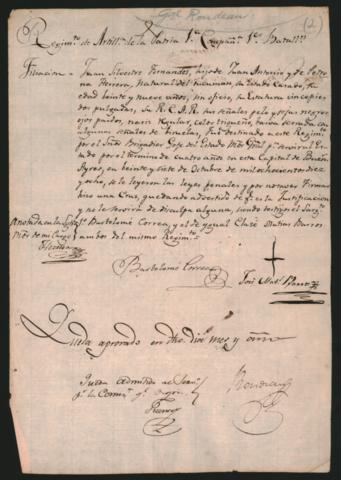 Gral Rondeau (2)
Regimto. de Artilla. de la Patria 1a. Compañia 1er. Batallon
Filiacion = Juan Silvestre Fernandes, hijo de Juan Antonio y de
Herrera, Natural del Tucuman, su Estado Casado, su
edad beinte y nueve años, Sin oficio, su Estatura cinco pies
dos pulgadas, Su R. C. A. R. Sus señales pelo y sejas negros
ojos pardos, naris regular, color trigueño, barba serrada con
algunas señales de biruelas, Fue destinado a este Regimto.
por el Señor Brigadier Gefe del Estado Mor. Gral. pa. servir al Es-
tado por el termino de cuatro años en esta Capital de Buenos
Ayres, en beinte y siete de Octubre de mil ochocientos diez
y ocho, se le leyeron las leyes penales y por no saver Firmar
hizo una Cruz, quedando advertido de qe. es la Justificacion
y no le servirá de disculpa alguna, siendo testigos el Sargto.
Bartolomé Correa, y el de ygual Clase Matias Barros
ambos del mismo Regimto.
Anotada en la
Bartolomé Correa
Queda aprovado en dho. dia mes y año
Rondeau
Queda admitido